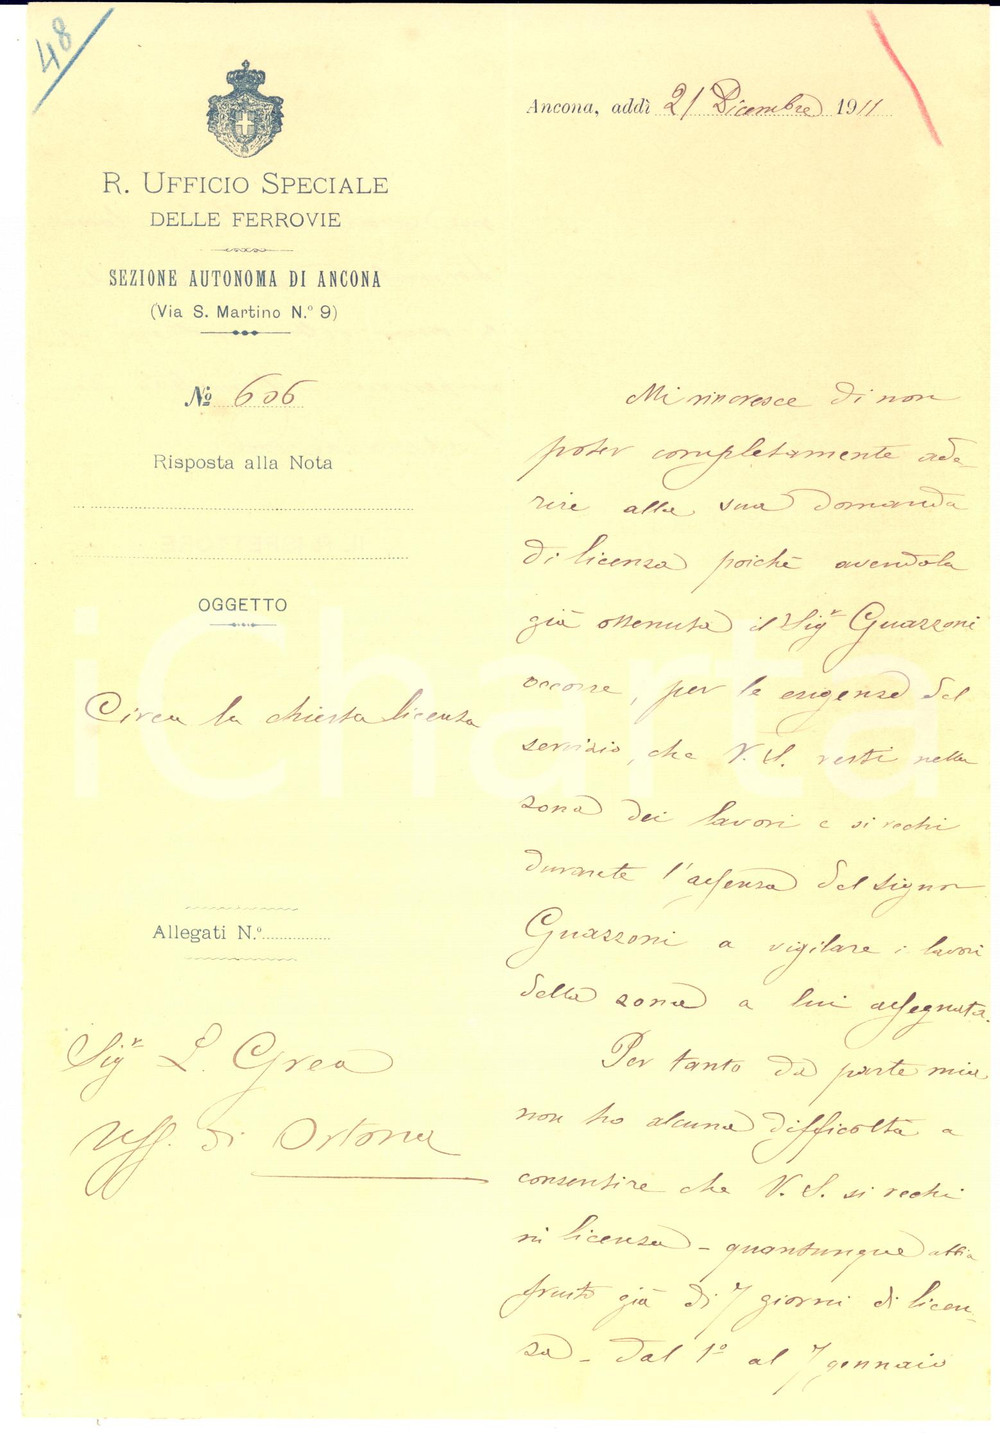 48
Ancona, addì 21 Dicembre 1911
R. UFFICIO SPECIALE
DELLE FERROVIE
SEZIONE AUTONOMA DI ANCONA
(Via S. Martino N.º 9)
Nº 606
Risposta alla Nota
OGGETTO
Circa la chiesta licenza
Allegati N.º
Sigʳ L. Grea
Uff. di Ortona
Mi rincresce di non
poter completamente ade-
rire alla sua domanda
di licenza poichè avendola
già ottenuta il Sigʳ Guazzoni
occorre, per le esigenze del
servizio, che V. S. resti nella
zona dei lavori e si rechi
durante l'assenza del signor
Guazzoni a vigilare i lavori
della zona a lui assegnata.
Per tanto da parte mia
non ho alcuna difficoltà a
consentire che V. S. si rechi
in licenza - quantunque abbia
fruito già di 7 giorni di licen-
za - dal 1º al 7 gennaio
iCharta